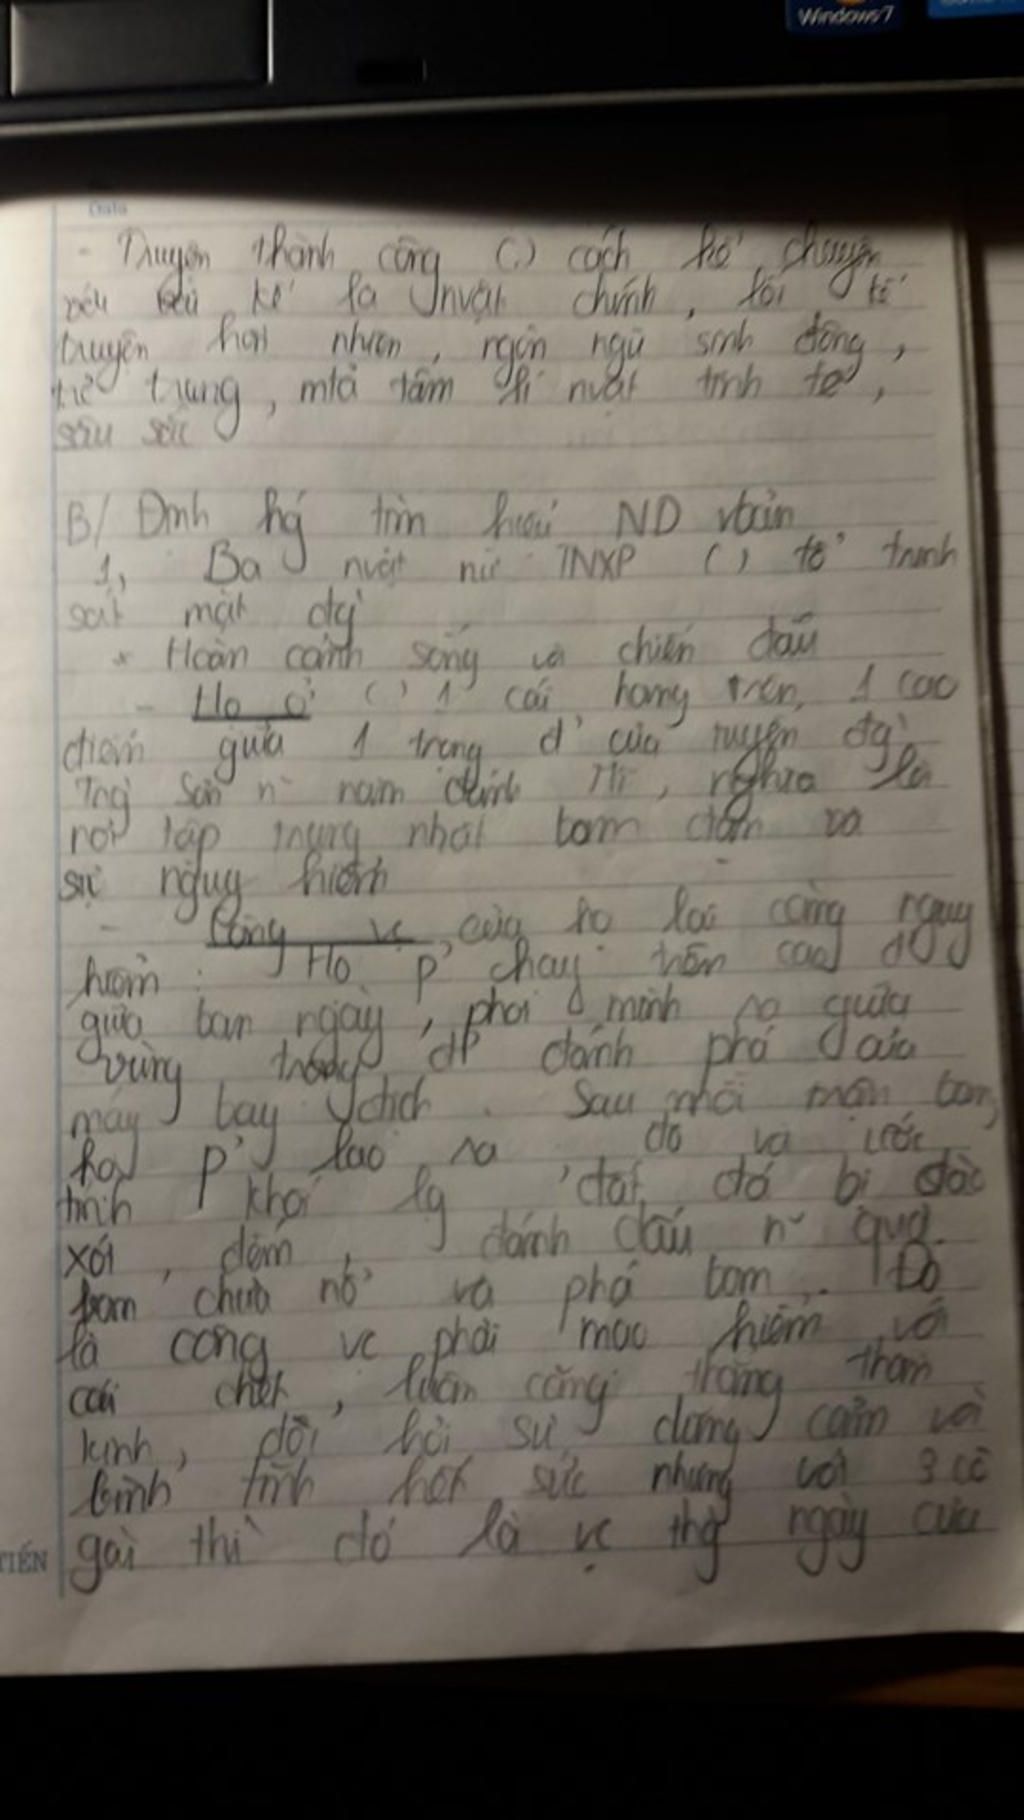 Windows 7
Date
- Truyện thành công ( ) cách kể chuyện
kể là nvật chính, lối kể
truyện hồn nhiên, ngôn ngữ sinh động,
trẻ trung, mtả tâm lí nvật tinh tế,
sâu sắc
B/ Định hg tìm hiểu ND vbản
1, Ba nvật nữ TNXP ( ) tổ trinh
sát mặt đg
* Hoàn cảnh sống và chiến đấu
- Họ ở ( ) 1 cái hang trên, 1 cao
điểm giữa 1 trọng đ' của tuyến đg
Trg Sơn n~ năm đánh Mĩ, nghĩa là
nơi tập trung nhất bom đạn và
sự nguy hiểm
- Công vc của họ lại càng nguy
hiểm : Họ p' chạy trên cao đ'
giữa ban ngày, phơi mình ra giữa
vùng trọng đ' đánh phá của
máy bay địch. Sau mỗi trận bom,
họ p' lao ra đo và ước
tính khối lg đất đá bị đào
xới, đếm, đánh dấu n~ quả
bom chưa nổ và phá bom. Đó
là công vc phải mạo hiểm với
cái chết, luôn căng thẳng thần
kinh, đòi hỏi sự dũng cảm và
bình tĩnh hết sức nhưng với 3 cô
gái thì đó là vc thg ngày của
TIẾN